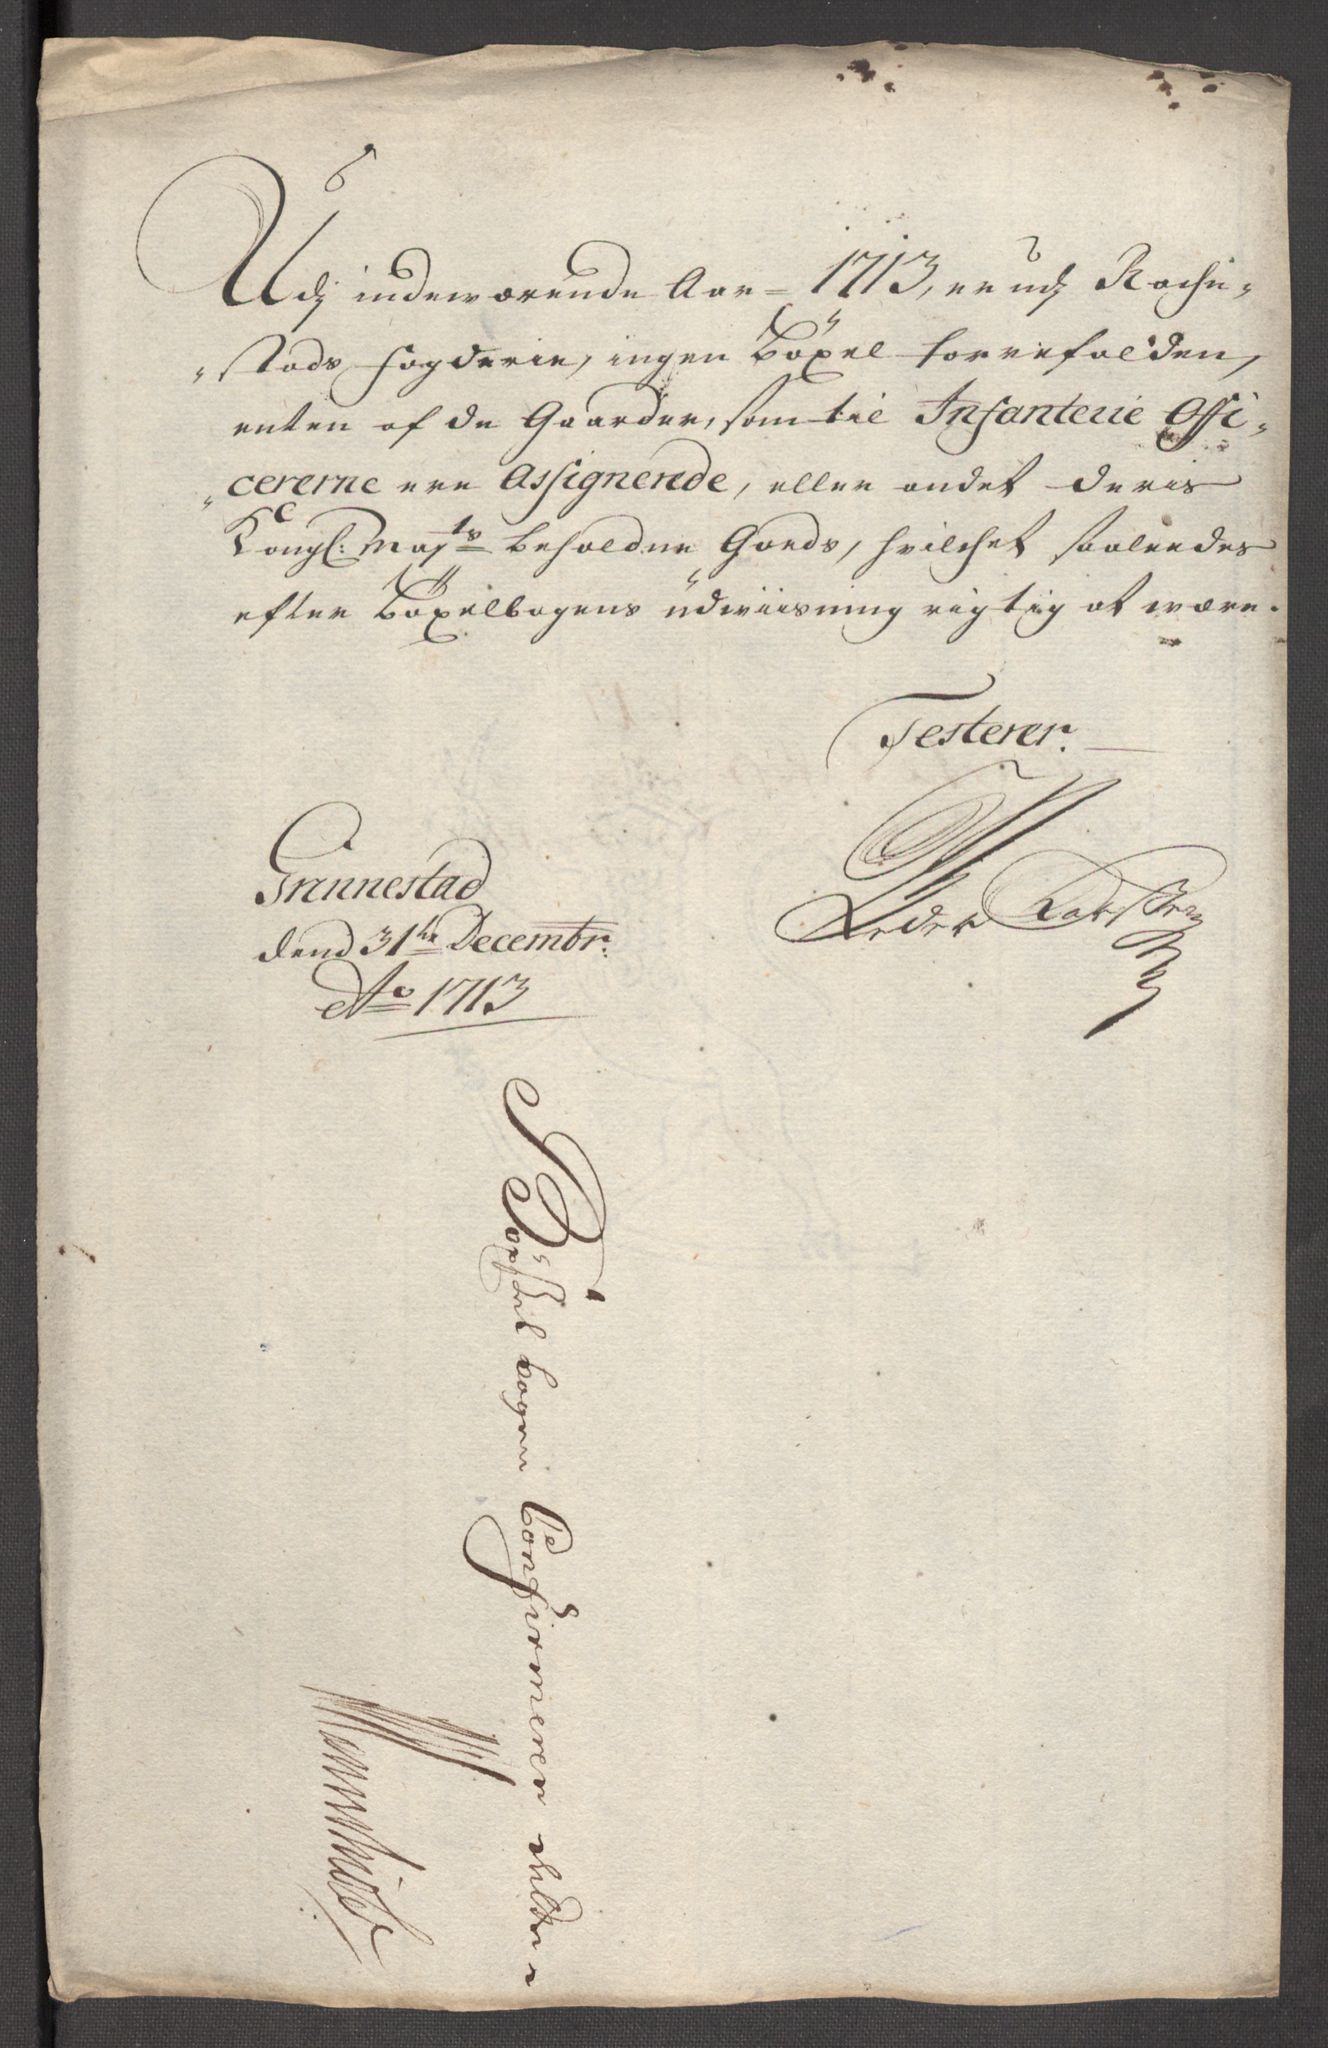 Udj indeværende Aar 1713, er udj Rache„
„stads fogderie, ingen Böxel forrefalden,
enten af de Gaarder, som til Infanterie Offi„
„cererne ere Assignerede, eller andet deris
Kongl: Mayts beholdne Goeds, hvilchet saaleedes
efter Böxelbogens üdviisning rigtig at være.
Testerer.
Grinnestad
dend 31te Decembr:
Ao 1713
Peder Karssten
Böxel bogen Confirmerer